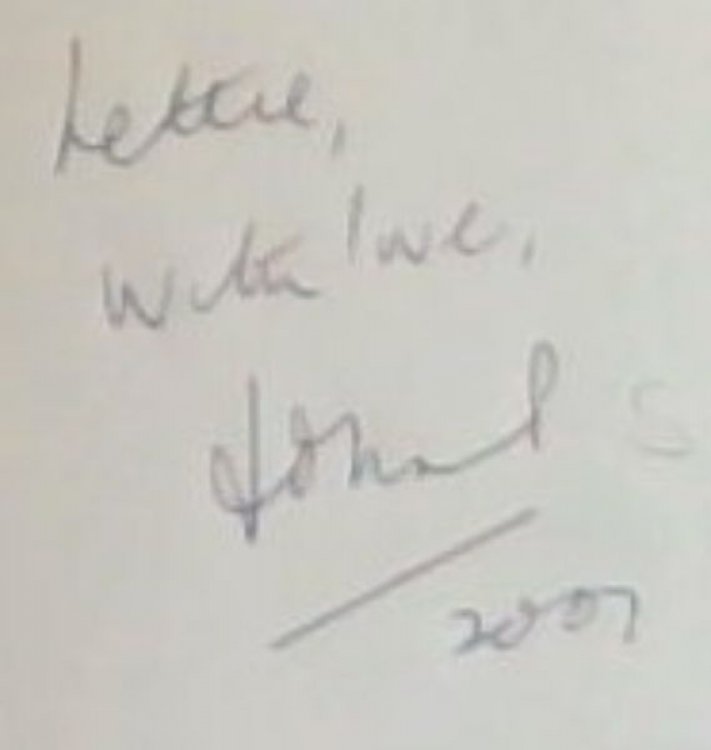 Lettie,
With love,
2007